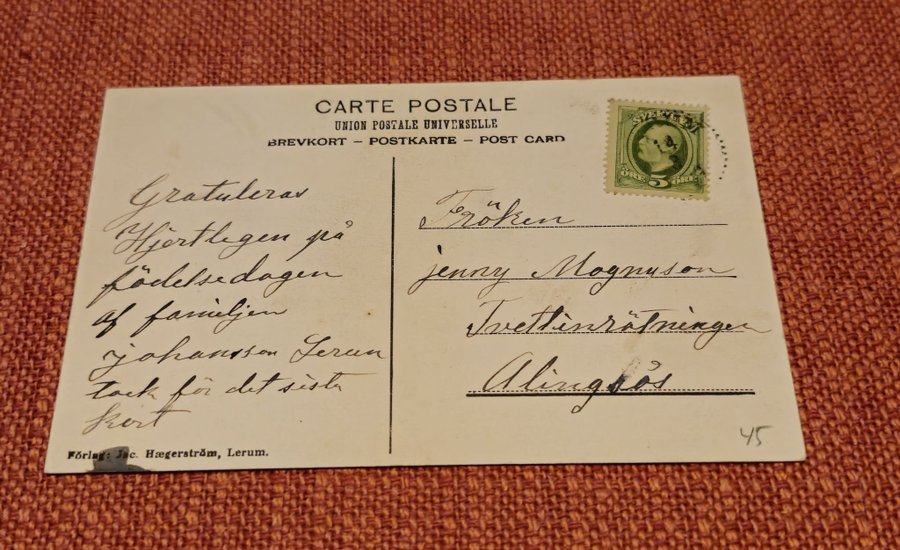 CARTE POSTALE
UNION POSTALE UNIVERSELLE
BREVKORT – POSTKARTE – POST CARD
SVERIGE
ÖRE 5 ÖRE
Gratuleras
Hjertlegen på
födelsedagen
af familjen
johansson Lerun
tack för det sista
kort
Fröken
jenny Magnuson
Tvettinrätningen
Alingsås
45
Förlag: Jac. Hægerström, Lerum.